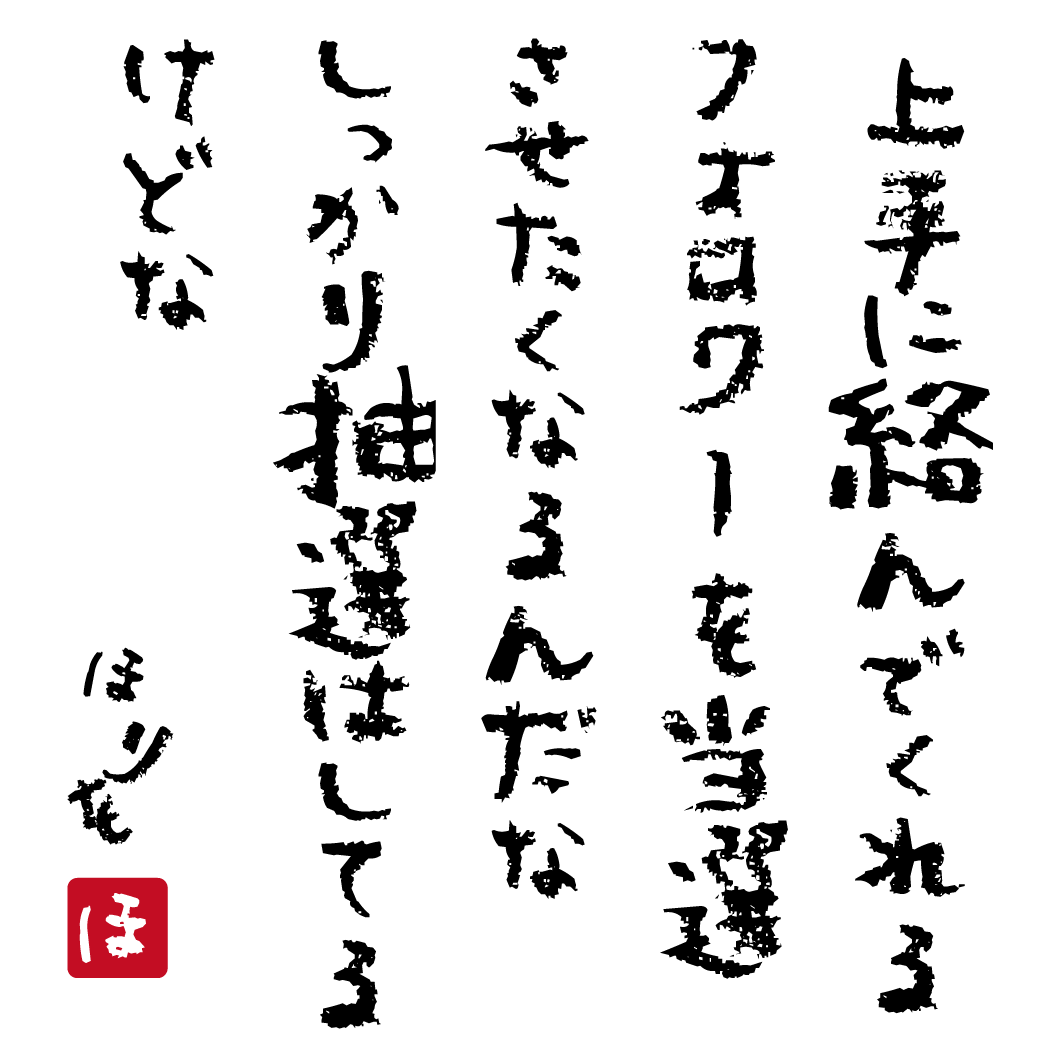 上手に絡んでくれる
フォロワーを当選
させたくなるんだな
しっかり抽選はしてる
けどな
ほりを
ほ